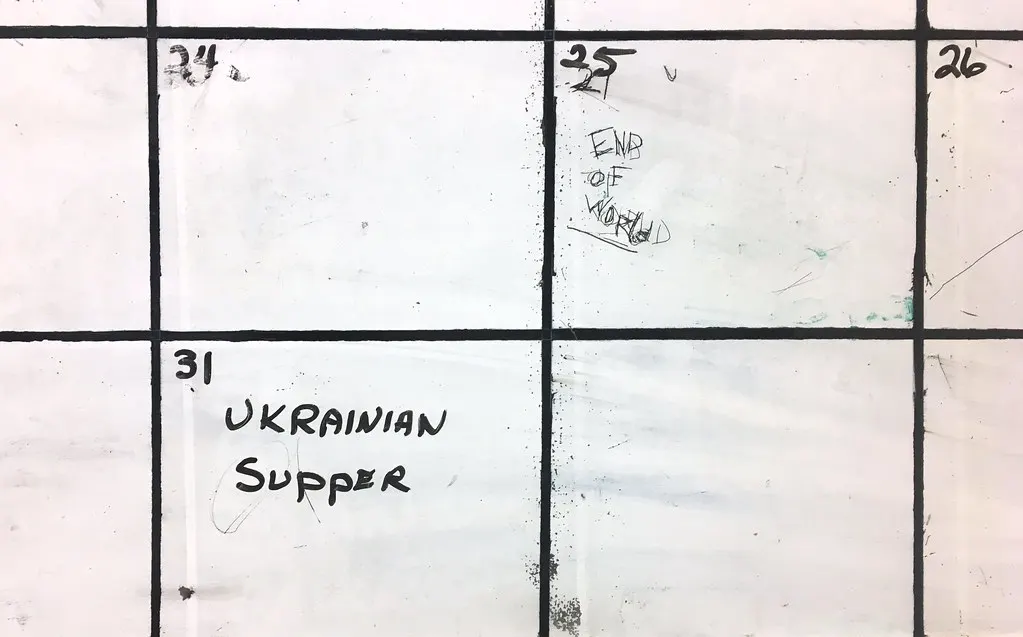 24
25
26
21
END
OF
WORLD
31
UKRAINIAN
SUPPER